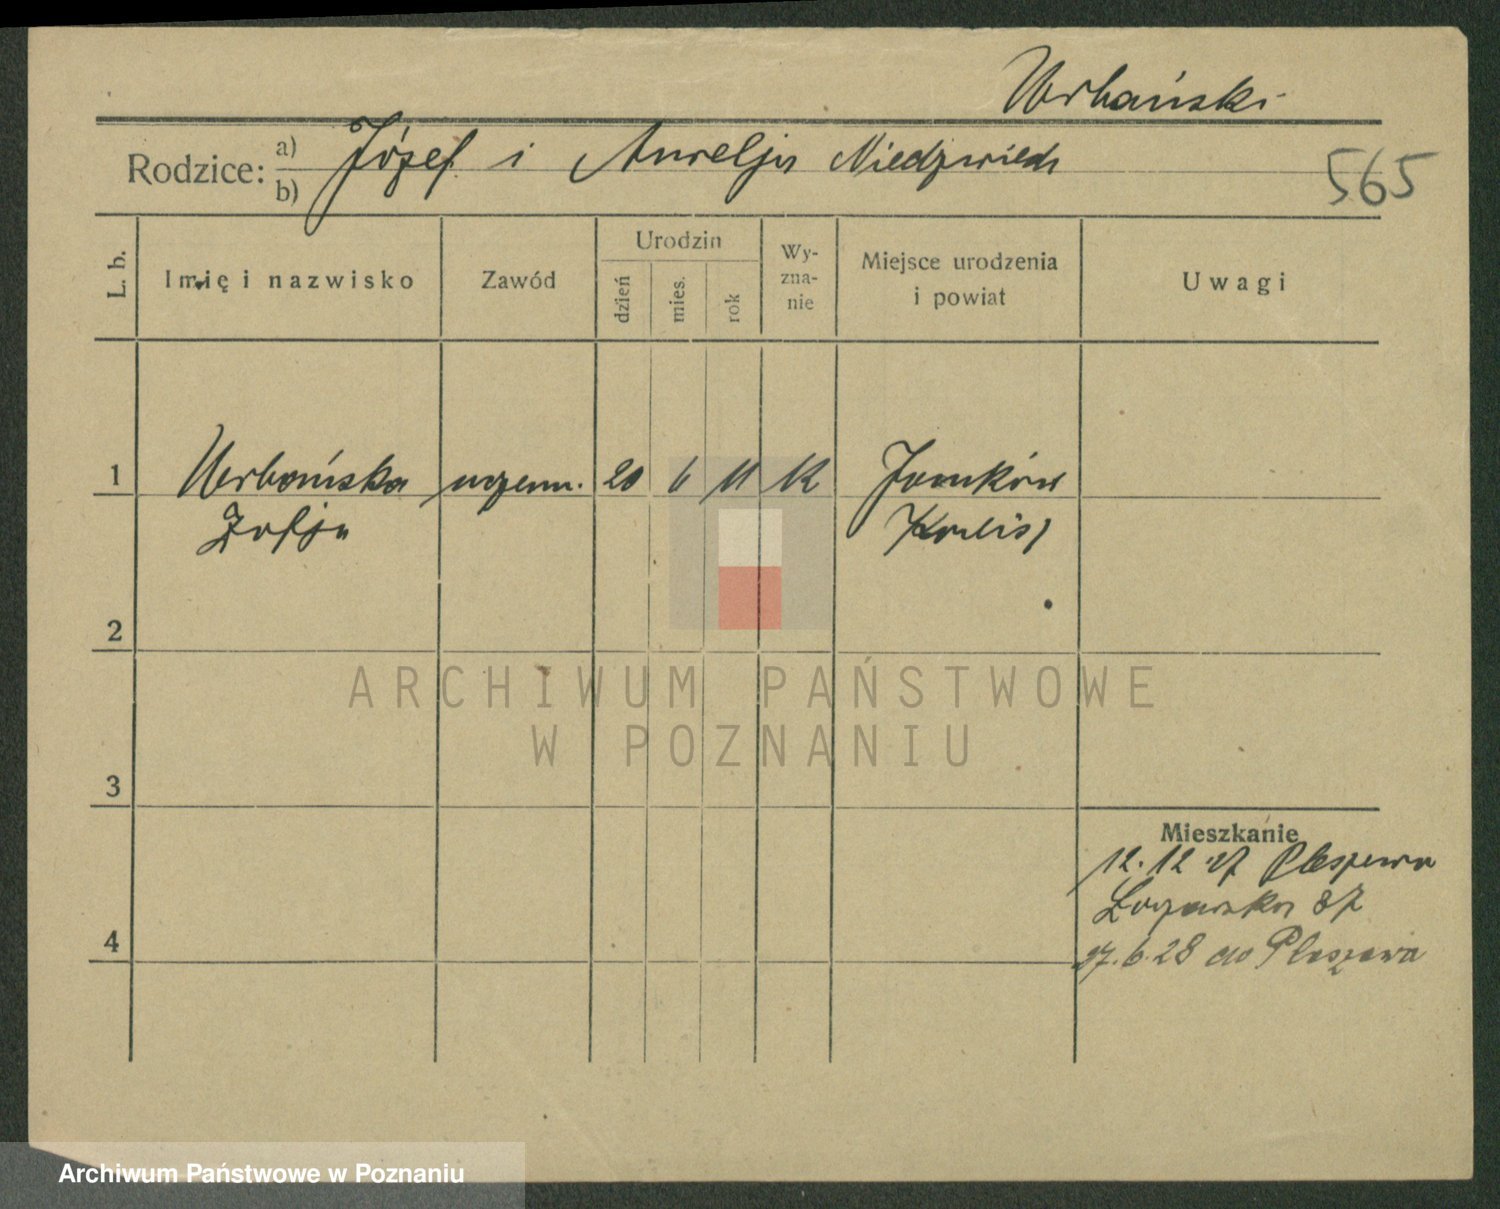 Urbański
Rodzice: a) b) Józef i Aurelja Niedzwiedz
565
L. b.
Imię i nazwisko
Zawód
Urodzin
dzień
mies.
rok
Wy-
zna-
nie
Miejsce urodzenia
i powiat
Uwagi
1 Urbańska uczenn. 20 6 11 K Janków
Zofja Kalisz
2
3
4
Mieszkanie
12.12.27 Pleszewa
87
27.6.28 do Pleszewa
ARCHIWUM PAŃSTWOWE
W POZNANIU
Archiwum Państwowe w Poznaniu